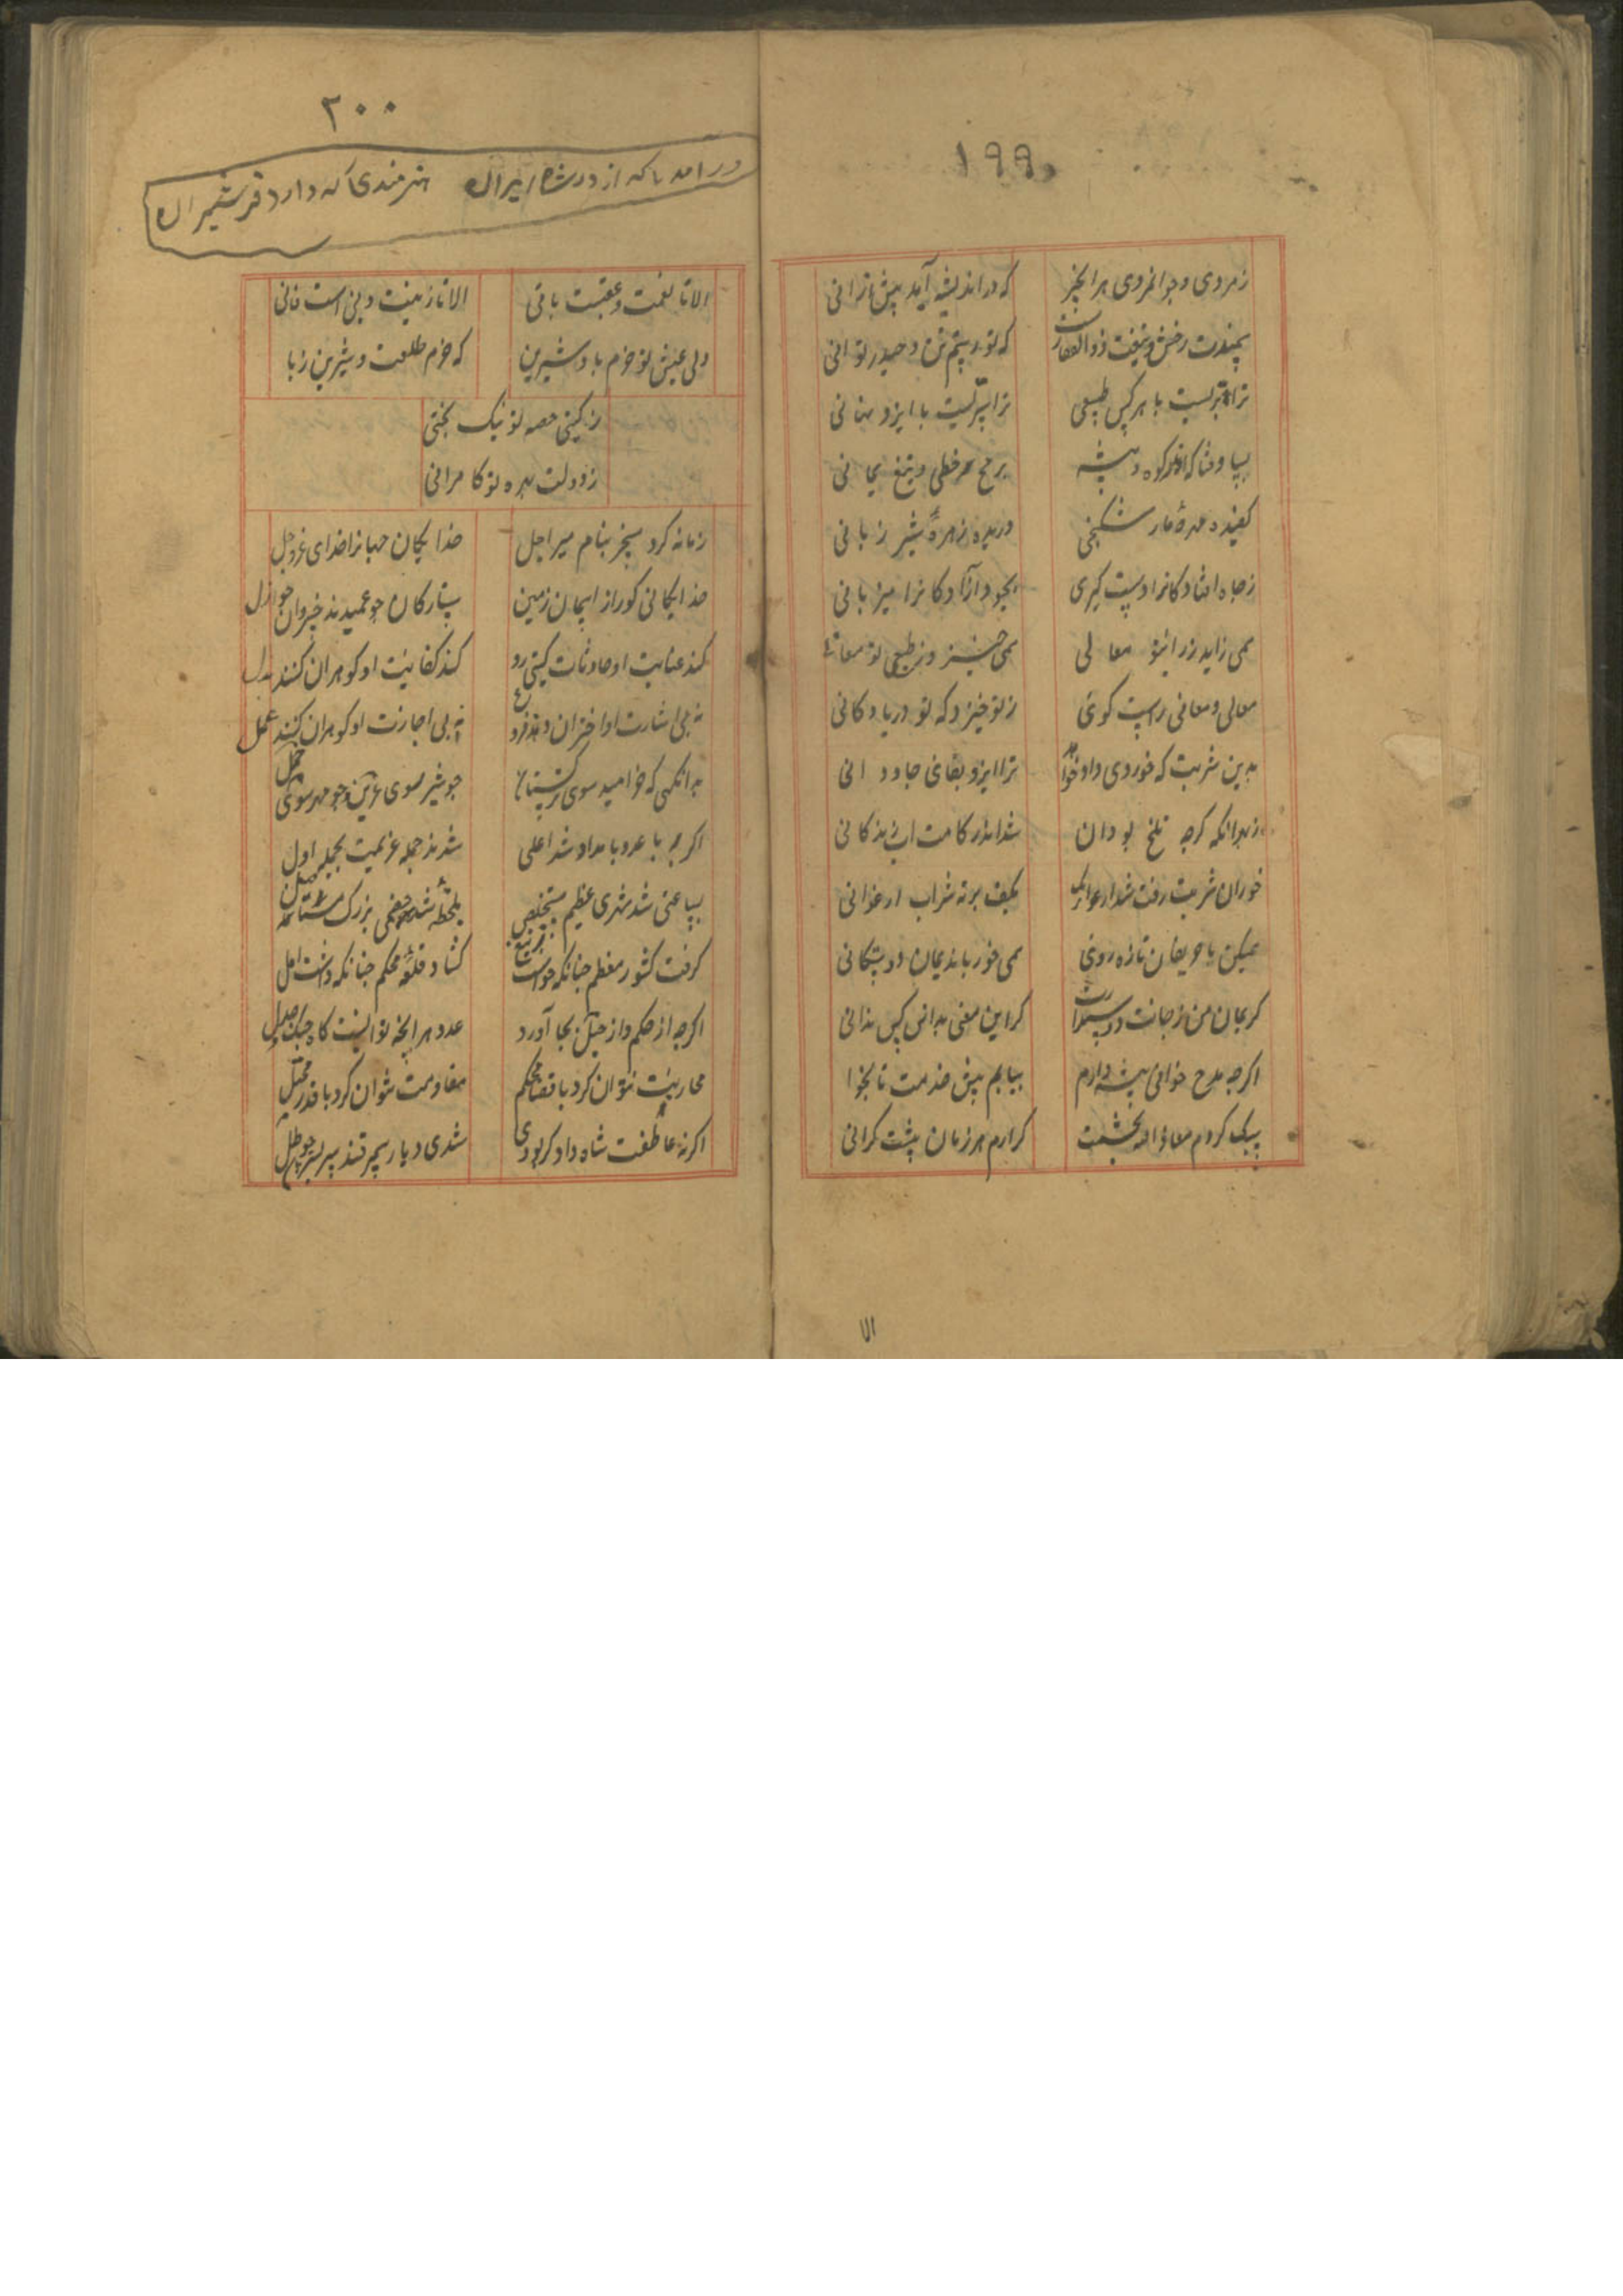 ۱۹۹
زمردی و جوانمردی هر انچز که در اندیشه آید بیش ازانی
سمندت رخش و تیغت ذوالفقارست که تو رستم تن و حیدر توانی
ترا با هر کس طبیعی ترا سریست با ایزد نهانی
بسا وقتا که اندر کوه و بیشه برمح خطی و تیغ یمانی
کفیده مهرهٔ مار شکنجی دریده زهرهٔ شیر ژیانی
ز جاه افتادکانرا دست کیری بجود آزادکانرا میزبانی
همی زاید ز رای تو معالی همی خیزد ز طبع تو معانی
معالی و معانی راست کوئی ز تو خیزد که تو دریا و کانی
بدین شربت که خوردی داد خواهد ترا ایزد بقای جاودانی
ازیرا نکه کرچه تلخ بود آن شد اندر کامت آب زندکانی
خور آن شربت رفت شد ارغوان بکف برنه شراب ارغوانی
همیکن با حریفان تازه روئی همی خور با ندیمان دوستکانی
کریمان من ز جانت دوستر کر این معنی بدانی کس ندانی
اکرچه مدح خوانی پیشه دارم بیایم پیش خدمت تا بخوا
سبک کردم معاذ الله بخشمت کر آرم هر زمان پیشت کرانی
الا
۲۰۰
در امد تا که از در شاه ایران هنرمندی که دارد فر شیران
الا تا نعمت و عقبیست باقی الا تا زینت دنی است فانی
ولی عیش تو خرم باد و شیرین که خرم طلعت و شیرین زبا
ز کیتی حصه تو نیک بختی
ز دولت بهره تو کامرانی
زمانه کرد مسخر بنام میر اجل خدایکان جهانرا خدای عز و جل
خدایکانی کورا ز ایمان زمین ستارکان چو عبیدند خسروان چو خول
کند عنایت او حادثات کیتی رد کند کفایت او کوهران کنند بدل
نه بی اشارت او اختران دهند فروغ نه بی اجازت او کوهران کنند عمل
بدانکهی که خرامید سوی ترکستان چو شیر سوی عرین و چو مهر سوی حمل
اکرچه با عدو بامداد شد اعلی شدند جمله عزیمت بحمله اول
بساعتی شد شهری عظیم مستخلص بلحظه شد جمعی بزرک مستاصل
کرفت کشور معظم چنانکه خواست بتیغ کشاد قلعهٔ محکم چنانکه داشت امل
اکرچه از حکم و از حیل بجا آورد عدو هر انچه توانست کاه جنک و جدل
محاربت نتوان کرد با قضای محکم مقاومت نتوان کرد با قدر بحیل
اکر نه عاطفت شاه دادکر بودی شدی دیار سمرقند سربسر چو طلل